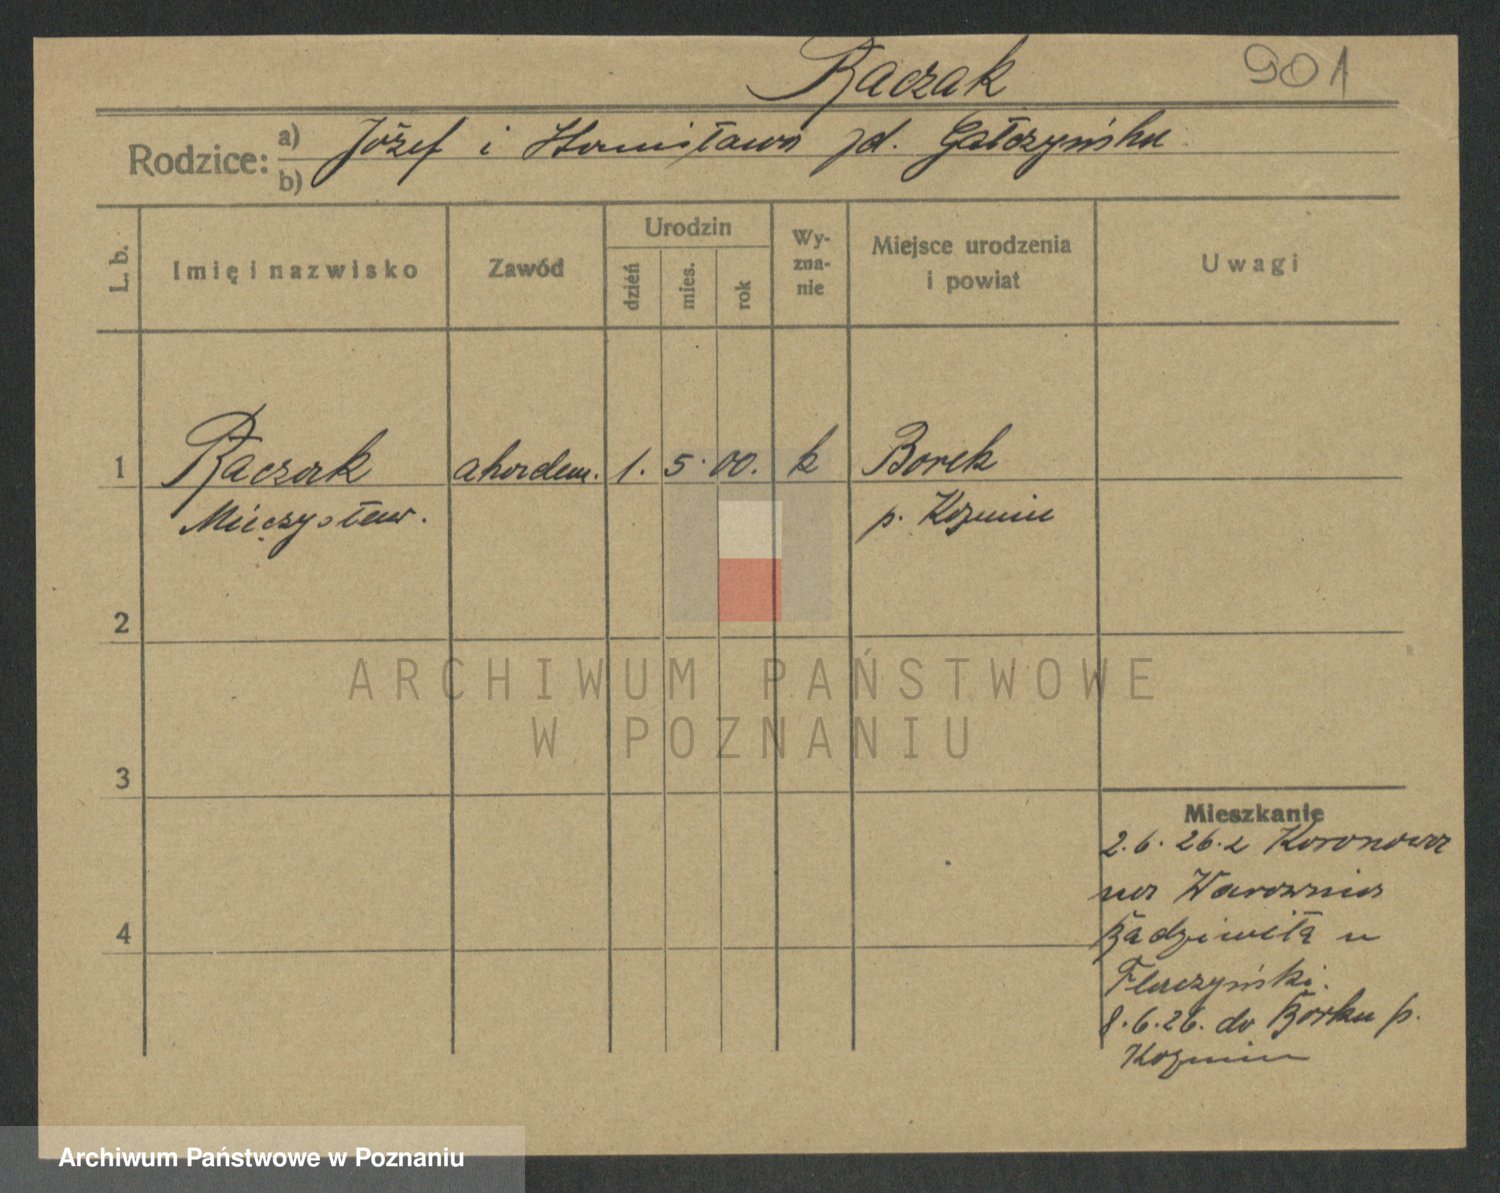 Raczak
901
Rodzice: a) Józef i Stanisława zd. Gałczyńska
b)
L. b.
Imię i nazwisko
Zawód
Urodzin
dzień
mies.
rok
Wy-
zna-
nie
Miejsce urodzenia
i powiat
Uwagi
1
Raczak
akadem.
1.
5.
00.
k
Borek
Mieczysław.
p. Kozmin
2
ARCHIWUM PAŃSTWOWE
W POZNANIU
3
Mieszkanie
2.6.26. z Koronowa
na
4
u
8.6.26. do Borku p.
Kozmin
Archiwum Państwowe w Poznaniu